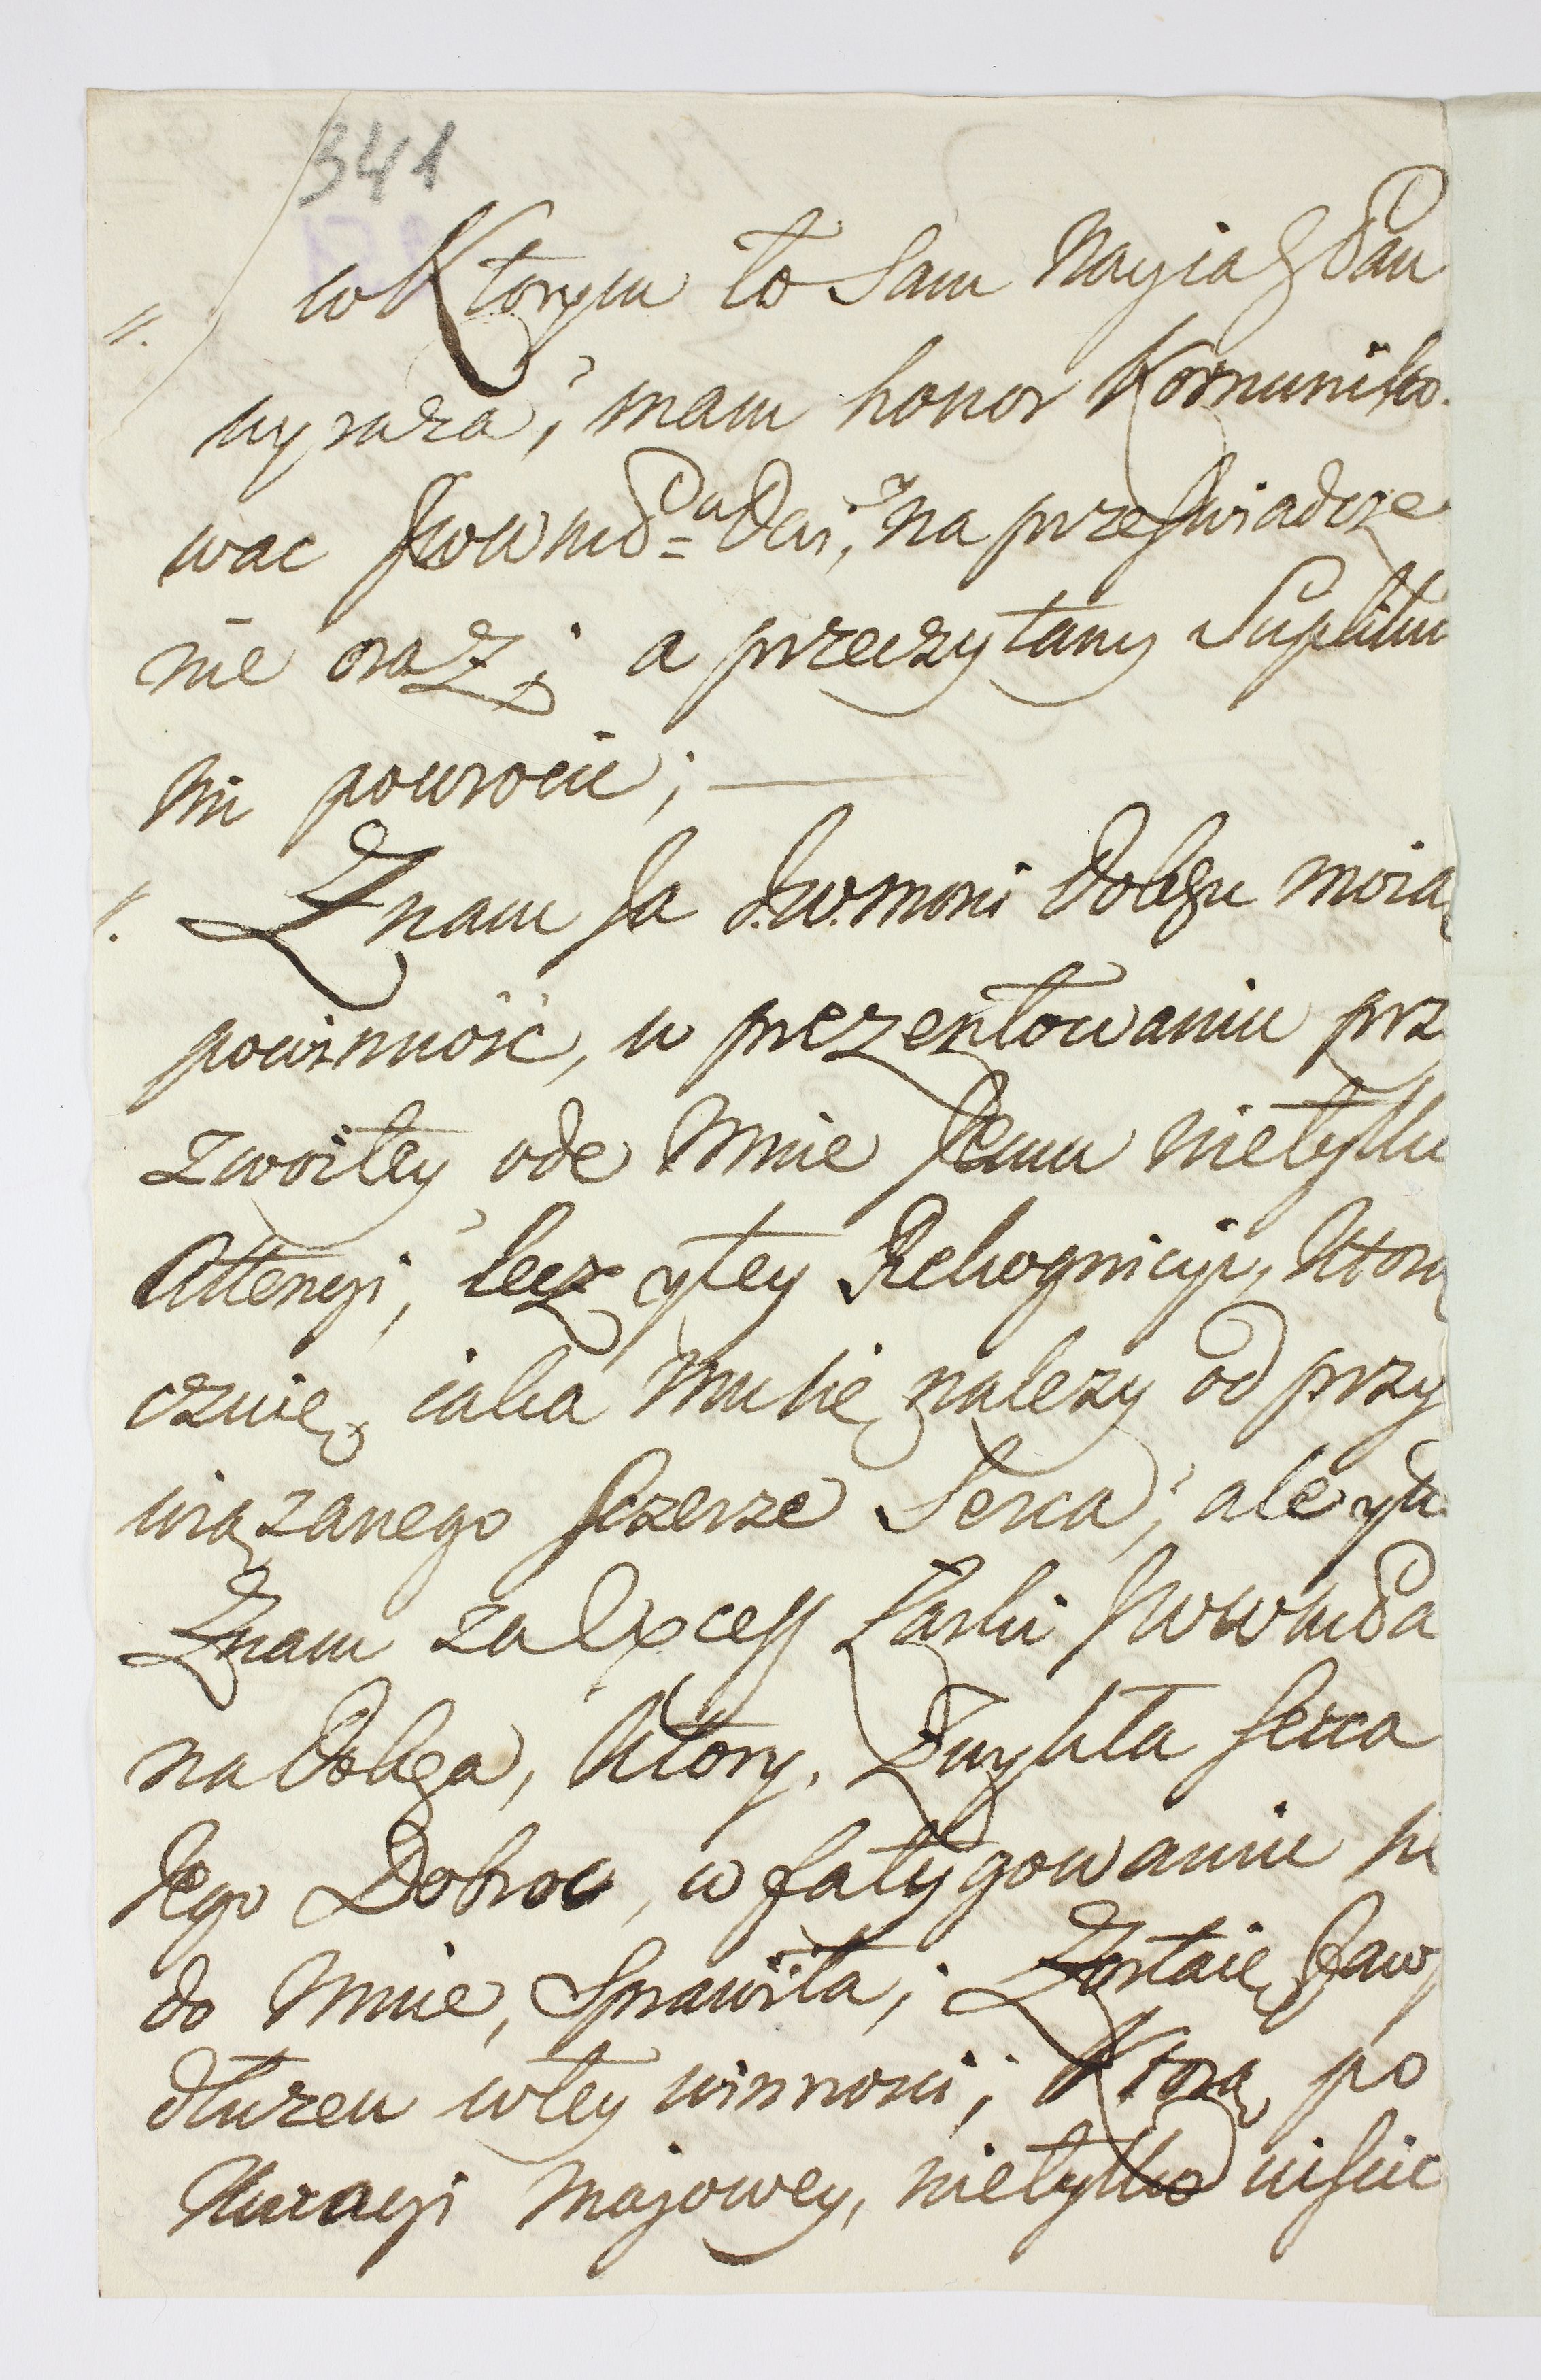 341
w Ktorym to Sam Nayias Pan
wyraza, mam honor Kommuniko
wac JwwmPa Dei, na przeswiadcze
nie oraz; a przeczytany Suplikuie
mi powrocic;
Znam Ja J.w.mosci Dobgu moią
powinność, w prezentowaniu prz
zwoitey ode Mnie Jemu nietylko
Attencyi, lecz y tey Rekognicyi, ktorą
czuię, iaka mu się nalezy od przy
wiązanego sczerze Serca; ale y
Znam za Excess Łaski JwwmPa
na Dobga, ktory, Zwykła serca
Jego Dobroc, w fatygowaniu
do Mnie, Sprawiła; Zostaię
dłuzen w tey winnosci; Ktorą po
Kuracyi Majowey, nietylko uiscic